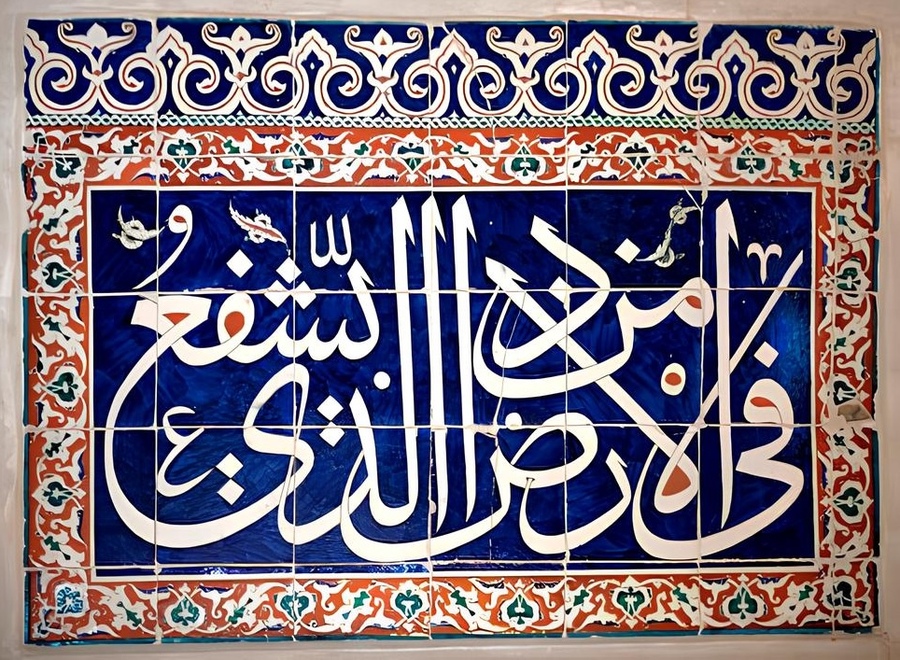 فى الارض من ذا الذى يشفع